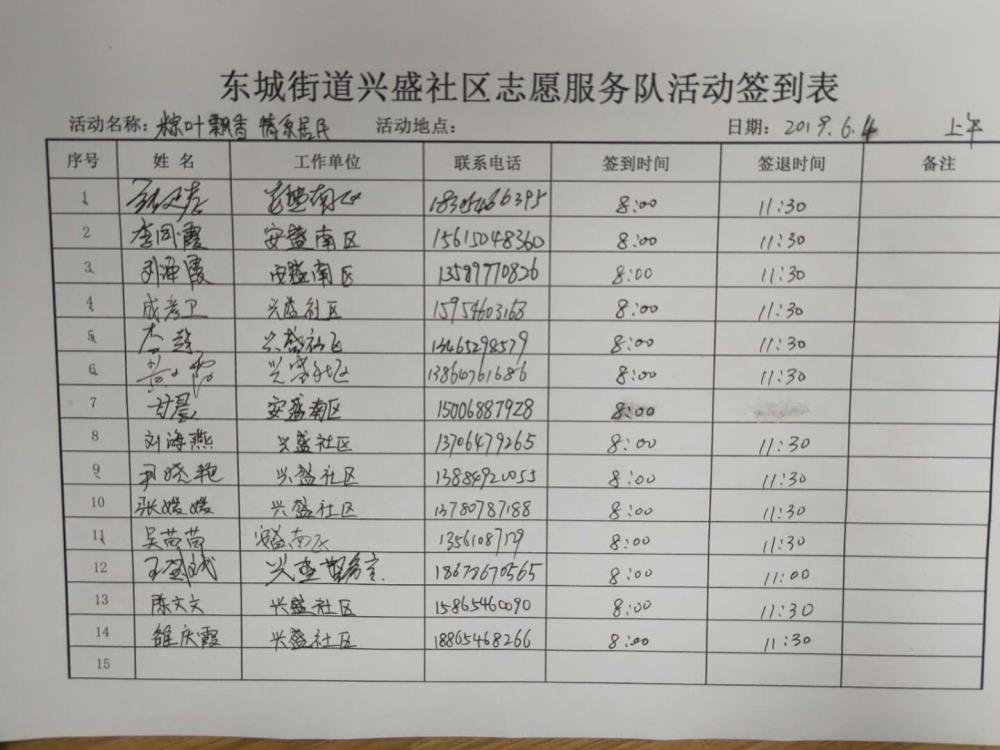 东城街道兴盛社区志愿服务队活动签到表
活动名称：粽叶飘香 情系居民 活动地点： 日期：2019.6.4 上午
序号 姓名 工作单位 联系电话 签到时间 签退时间 备注
1 18305466395 8:00 11:30
2 李同霞 安盛南区 15615048360 8:00 11:30
3 刘海霞 安盛南区 13589770826 8:00 11:30
4 成彦卫 兴盛社区 15954603168 8:00 11:30
5 兴盛社区 13465298579 8:00 11:30
6 兴盛社区 13864761686 8:00 11:30
7 甘晨 安盛南区 15006887928 8:00
8 刘海燕 兴盛社区 13706479265 8:00 11:30
9 尹晓艳 兴盛社区 13884920055 8:00 11:30
10 张嫒嫒 兴盛社区 13780787188 8:00 11:30
11 吴苗苗 安盛南区 8:00 11:30
12 18678670565 8:00 11:00
13 陈文文 兴盛社区 15865460090 8:00 11:30
14 雒庆霞 兴盛社区 18865468266 8:00 11:30
15